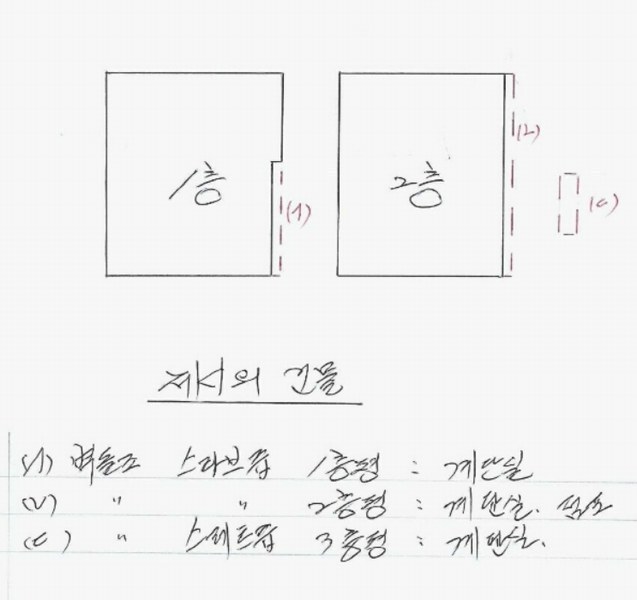 1층
2층
(1)
(2)
(c)
제시외 건물
(1) 벽돌조 스라브즙 1층평 : 계단실
(2) " " 2층평 : 계단실.
(c) " 스레트즙 3층평 : 계단실.